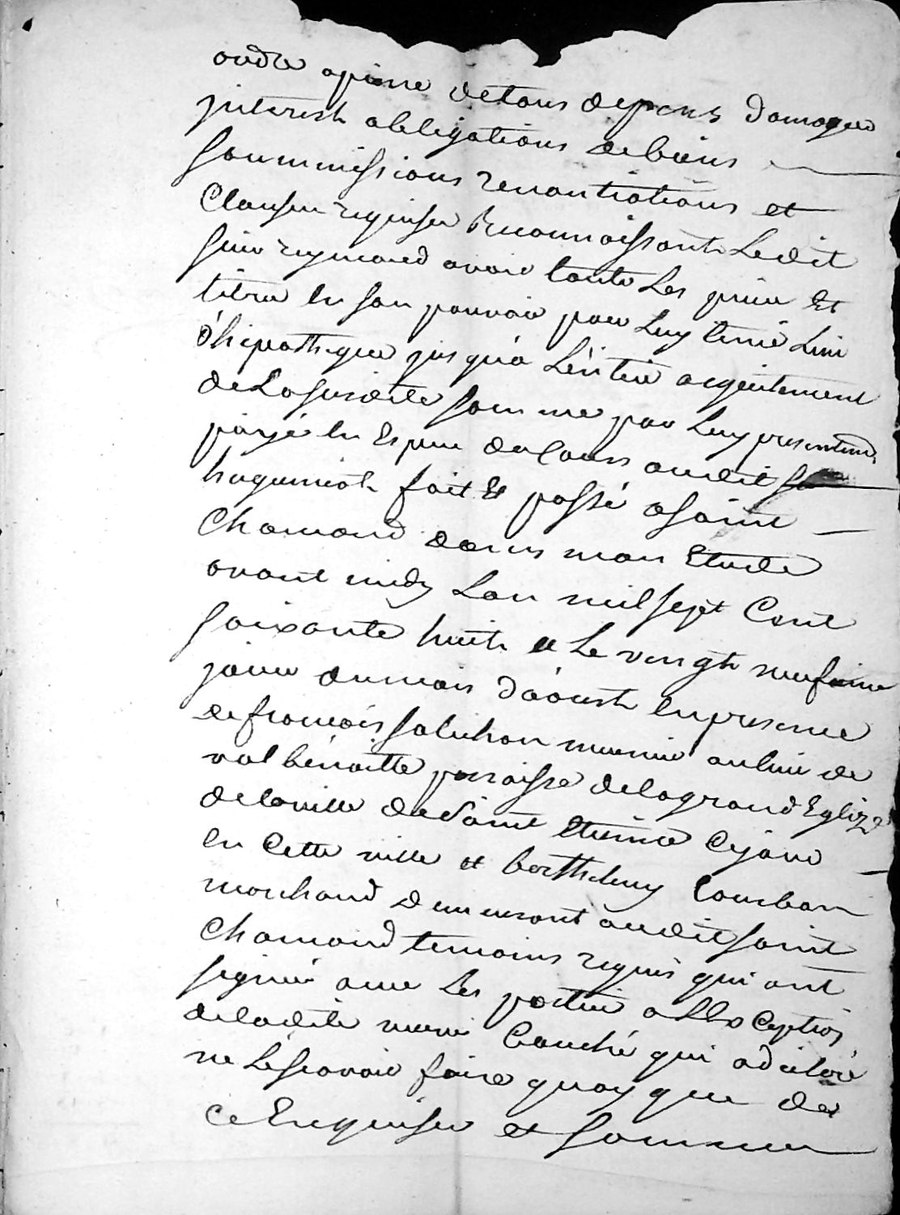 ordre apeine detous depens damages
jnterests obligations debiens
soummissions renontiations et
Clauses requises Reconnoissants Ledit
sieur reymond avoir touts Les prix et
titres en son pouvoir pour Luy tenir Lieu
d'hipotheque jusqu'a L'entier acquittement
deLasusdite somme par Luy presentement
payée en Espece de cours audit
huguenot fait Et passé a saint
Chamond dans mon Etude
avant midy Lan mil sept Cent
soixante huit et Le vingt neufieme
jour dumois d'aoust en presence
de francois meunier au lieu de
val benoitte parroisse delagrand Eglize
delaville de saint Etienne
en Cette ville et berthelemy
marchand demeurant audit saint
Chamond temoins requis qui ont
signé avec Les parties a L'exception
deladite qui a déclaré
ne Lésçavoir faire quoy que de
ce Enquise et sommée